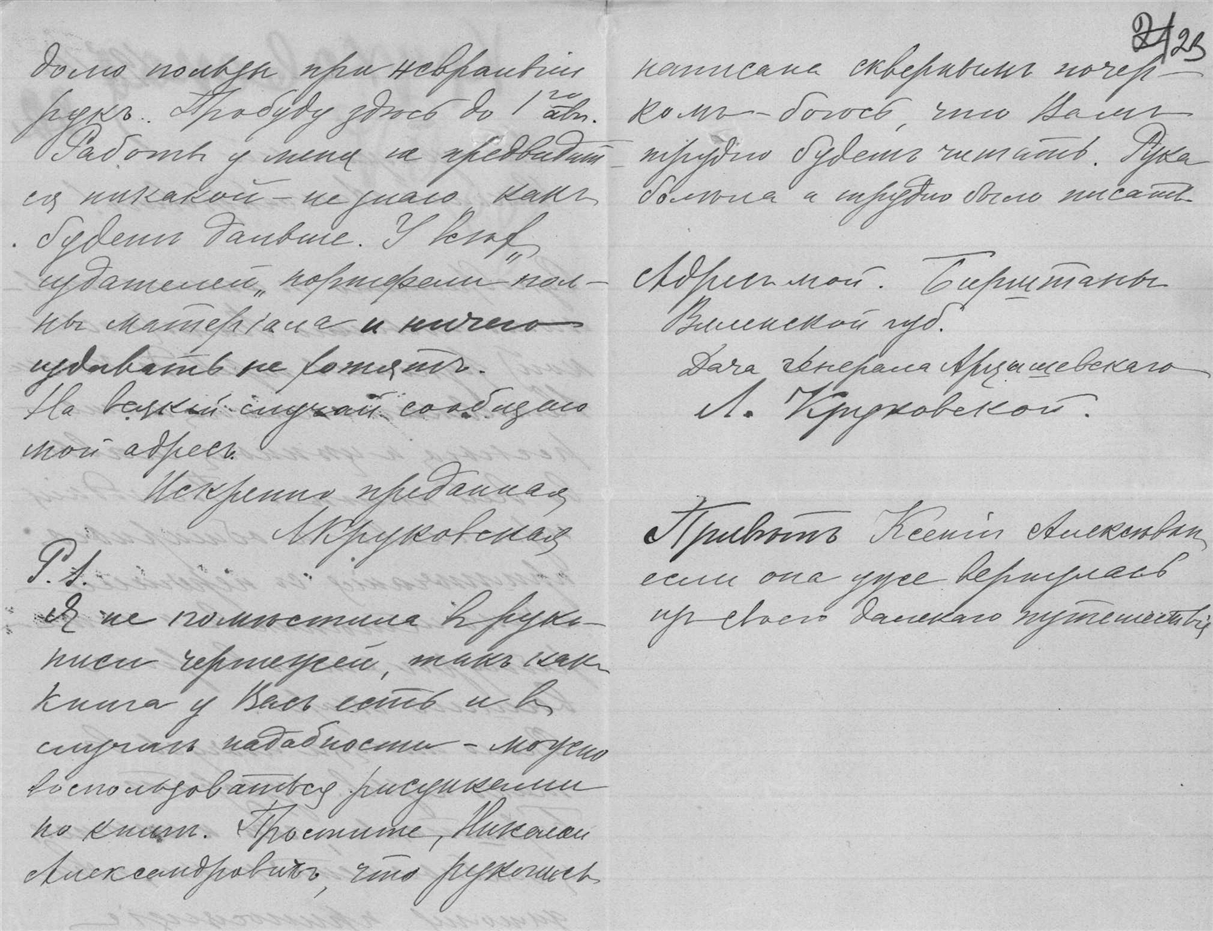 24 25
пользы при невралгіи
рукъ. Пробуду здѣсь до 1го авг.
Работы у меня не предвидит-
ся никакой – не знаю какъ
будетъ дальше. У всѣхъ
издателей „портфели пол-
ны матеріала и ничего
издавать не хотятъ.
На всякій случай сообщаю
мой адресъ.
Искренно преданная
ЛКруковская
P.S.
Я не помѣстила въ руко-
писи чертежей, такъ какъ
книга у Васъ есть и въ
случаѣ надобности – можно
воспользоваться рисунками
по книгѣ. Простите, Николай
Александровичъ, что рукопись
написана сквернымъ почер-
комъ – боюсь, что Вамъ
трудно будетъ читать. Рука
болѣла и трудно было писать
Адресъ мой. Бирштаны
Виленской губ.
Дача генерала Арцишевскаго
Л. Круковской.
Привѣтъ Ксеніи Алексѣевнѣ,
если она уже вернулась
изъ своего далекаго путешествія